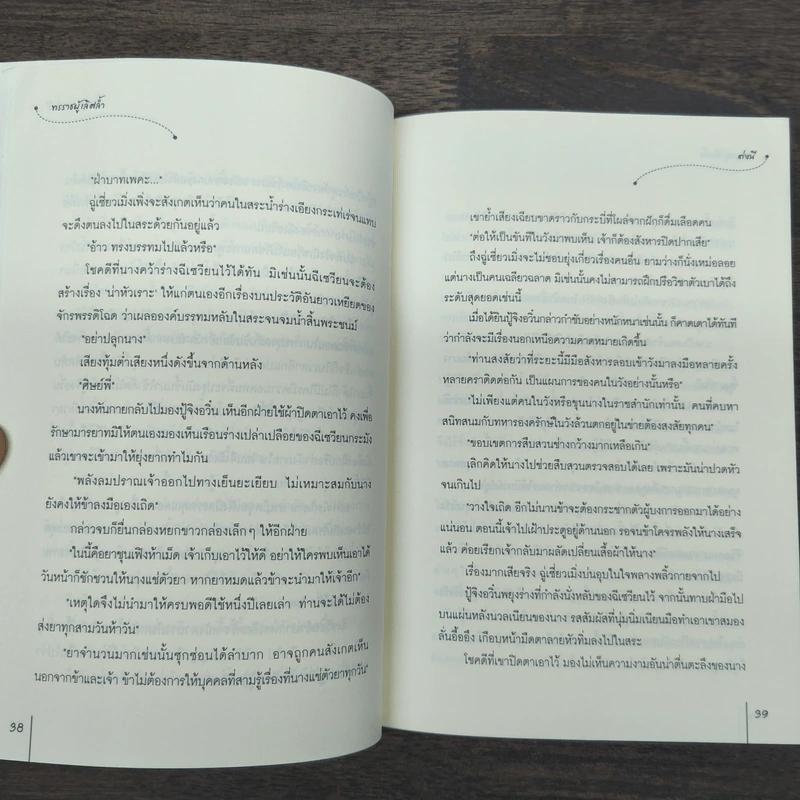 ทรราชผู้เลิศล้ำ
"ฝ่าบาทเพคะ..."
ฉู่เซี่ยวเมิ่งเพิ่งจะสังเกตเห็นว่าคนในสระน้ำร่างเอียงกระเท่เร่จนแทบ
จะดึงตนลงไปในสระด้วยกันอยู่แล้ว
"อ้าว ทรงบรรทมไปแล้วหรือ"
โชคดีที่นางคว้าร่างฉีเซวียนไว้ได้ทัน มิเช่นนั้นฉีเซวียนจะต้อง
สร้างเรื่อง 'น่าหัวเราะ' ให้แก่ตนเองอีกเรื่องบนประวัติอันยาวเหยียดของ
จักรพรรดิโฉด ว่าเผลอองค์บรรทมหลับในสระจนจมน้ำสิ้นพระชนม์
"อย่าปลุกนาง"
เสียงทุ้มต่ำเสียงหนึ่งดังขึ้นจากด้านหลัง
"ศิษย์พี่"
นางหันกายกลับไปมองปู้จิงอวิ๋น เห็นอีกฝ่ายใช้ผ้าปิดตาเอาไว้ คงเพื่อ
รักษามารยาทมิให้ตนเองมองเห็นเรือนร่างเปล่าเปลือยของฉีเซวียนกระมัง
แล้วเขาจะเข้ามาให้ยุ่งยากทำไมกัน
"พลังลมปราณเจ้าออกไปทางเย็นยะเยียบ ไม่เหมาะสมกับนาง
ยังคงให้ข้าลงมือเองเถิด"
กล่าวจบก็ยื่นกล่องหยกขาวกล่องเล็กๆ ให้อีกฝ่าย
"ในนี้คือยาชุนเฟิงห้าเม็ด เจ้าเก็บเอาไว้ให้ดี อย่าให้ใครพบเห็นเอาได้
วันหน้าก็ชักชวนให้นางแช่ตัวยา หากยาหมดแล้วข้าจะนำมาให้เจ้าอีก"
"เหตุใดจึงไม่นำมาให้ครบพอดีใช้หนึ่งปีเลยเล่า ท่านจะได้ไม่ต้อง
ส่งยาทุกสามวันห้าวัน"
"ยาจำนวนมากเช่นนั้นซุกซ่อนได้ลำบาก อาจถูกคนสังเกตเห็น
นอกจากข้าและเจ้า ข้าไม่ต้องการให้บุคคลที่สามรู้เรื่องที่นางแช่ตัวยาทุกวัน"
38
ต่งนี
เขาย้ำเสียงเฉียบขาดราวกับกระบี่ที่ไผลจากฝักก็ดื่มเลือดคน
"ต่อให้เป็นขันทีในวังมาพบเห็น เจ้าก็ต้องสังหารปิดปากเสีย"
ถึงฉู่เซี่ยวเมิ่งจะไม่ชอบยุ่งเกี่ยวเรื่องคนอื่น ยามว่างก็นั่งเหม่อลอย
แต่นางเป็นคนเฉลียวฉลาด มิเช่นนั้นคงไม่สามารถฝึกปรือวิชาตัวเบาได้ถึง
ระดับสุดยอดเช่นนี้
เมื่อได้ยินปู้จิงอวิ๋นกล่าวกำชับอย่างหนักหนาเช่นนั้น ก็คาดเดาได้ทันที
ว่ากำลังจะมีเรื่องนอกเหนือความคาดหมายเกิดขึ้น
"ท่านสงสัยว่าที่ระยะนี้มีมือสังหารลอบเข้าวังมาลงมือหลายครั้ง
หลายคราติดต่อกัน เป็นแผนการของคนในวังอย่างนั้นหรือ"
"ไม่เพียงแต่คนในวังหรือขุนนางในราชสำนักเท่านั้น คนที่คบหา
สนิทสนมกับทหารองครักษ์ในวังล้วนตกอยู่ในข่ายต้องสงสัยทุกคน"
"ขอบเขตการสืบสวนช่างกว้างมากเหลือเกิน"
เลิกคิดให้นางไปช่วยสืบสวนตรวจสอบได้เลย เพราะมันน่าปวดหัว
จนเกินไป
"วางใจเถิด อีกไม่นานข้าจะต้องกระชากตัวผู้บงการออกมาได้อย่าง
แน่นอน ตอนนี้เจ้าไปเฝ้าประตูอยู่ด้านนอก รอจนข้าโคจรพลังให้นางเสร็จ
แล้ว ค่อยเรียกเจ้ากลับมาผลัดเปลี่ยนเสื้อผ้าให้นาง"
เรื่องมากเสียจริง ฉู่เซี่ยวเมิ่งบ่นอุบในใจพลางพลิ้วกายจากไป
ปู้จิงอวิ๋นพยุงร่างที่กำลังนั่งหลับของฉีเซวียนไว้ จากนั้นทาบฝ่ามือไป
บนแผ่นหลังนวลเนียนของนาง รสสัมผัสที่นุ่มนิ่มเนียนมือทำเอาเขาสมอง
ลั่นอื้ออึง เกือบหน้ามืดตาลายหัวทิ่มลงไปในสระ
โชคดีที่เขาปิดตาเอาไว้ มองไม่เห็นความงามอันน่าตื่นตะลึงของนาง
39